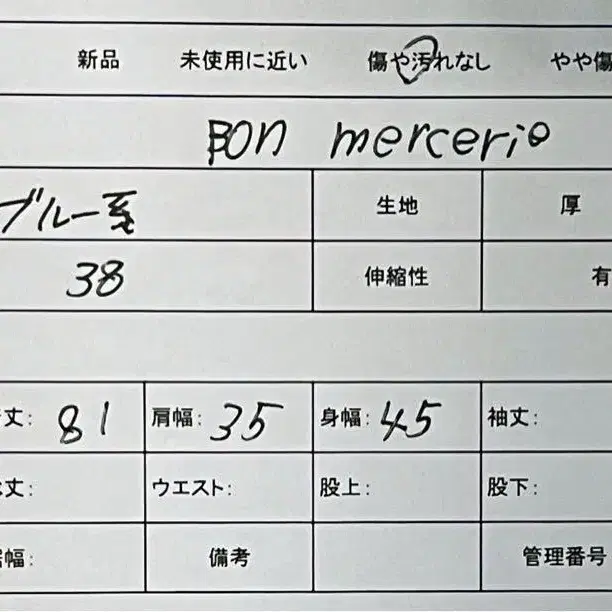 新品 未使用に近い 傷や汚れなし やや傷
BON mercerie
ブルー系 生地 厚
38 伸縮性 有
丈: 81 肩幅: 35 身幅: 45 袖丈:
丈: ウエスト: 股上: 股下:
幅: 備考 管理番号